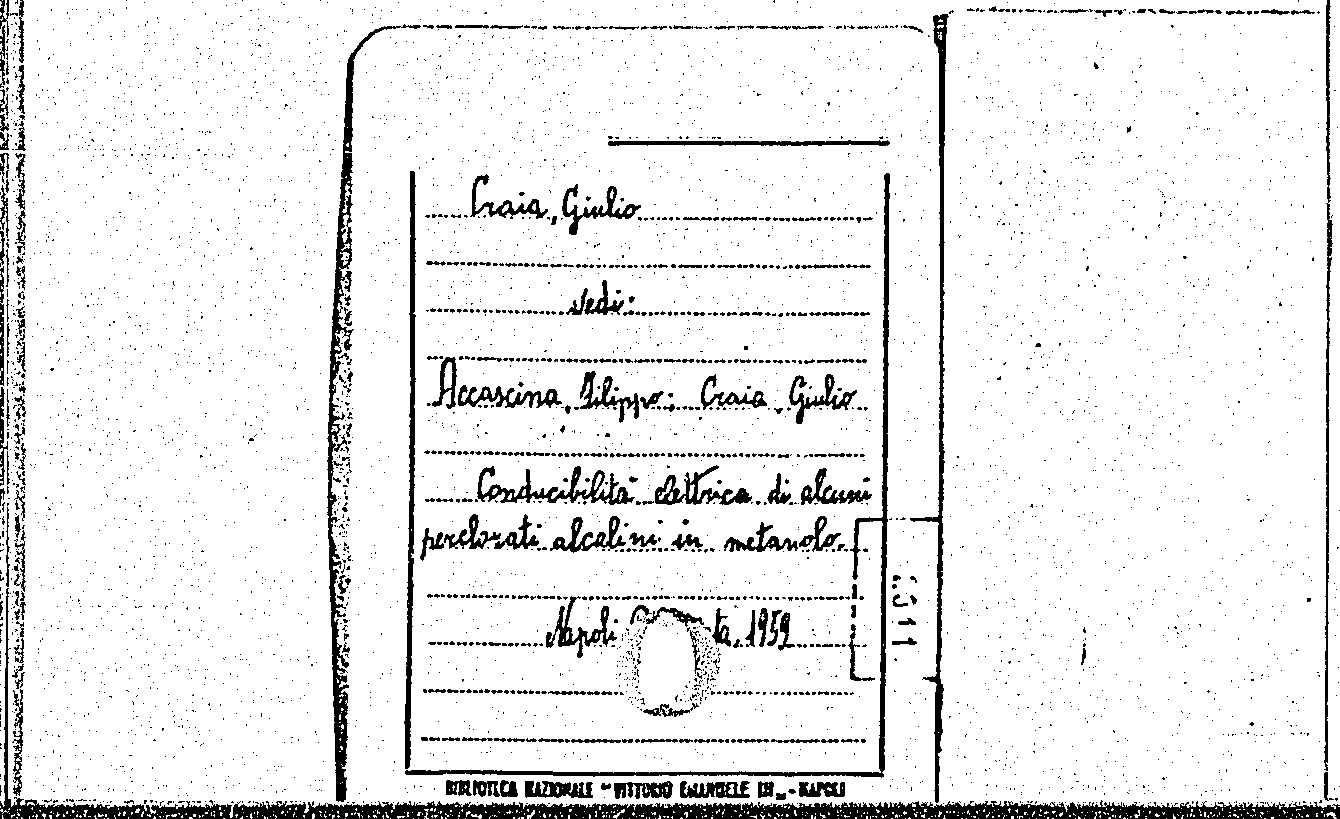 Craia, Giulio
vedi:
Accascina, Filippo; Craia, Giulio
Conducibilità elettrica di alcuni
perclorati alcalini in metanolo.
Napoli 1959
BIBLIOTECA NAZIONALE "VITTORIO EMANUELE III" - NAPOLI